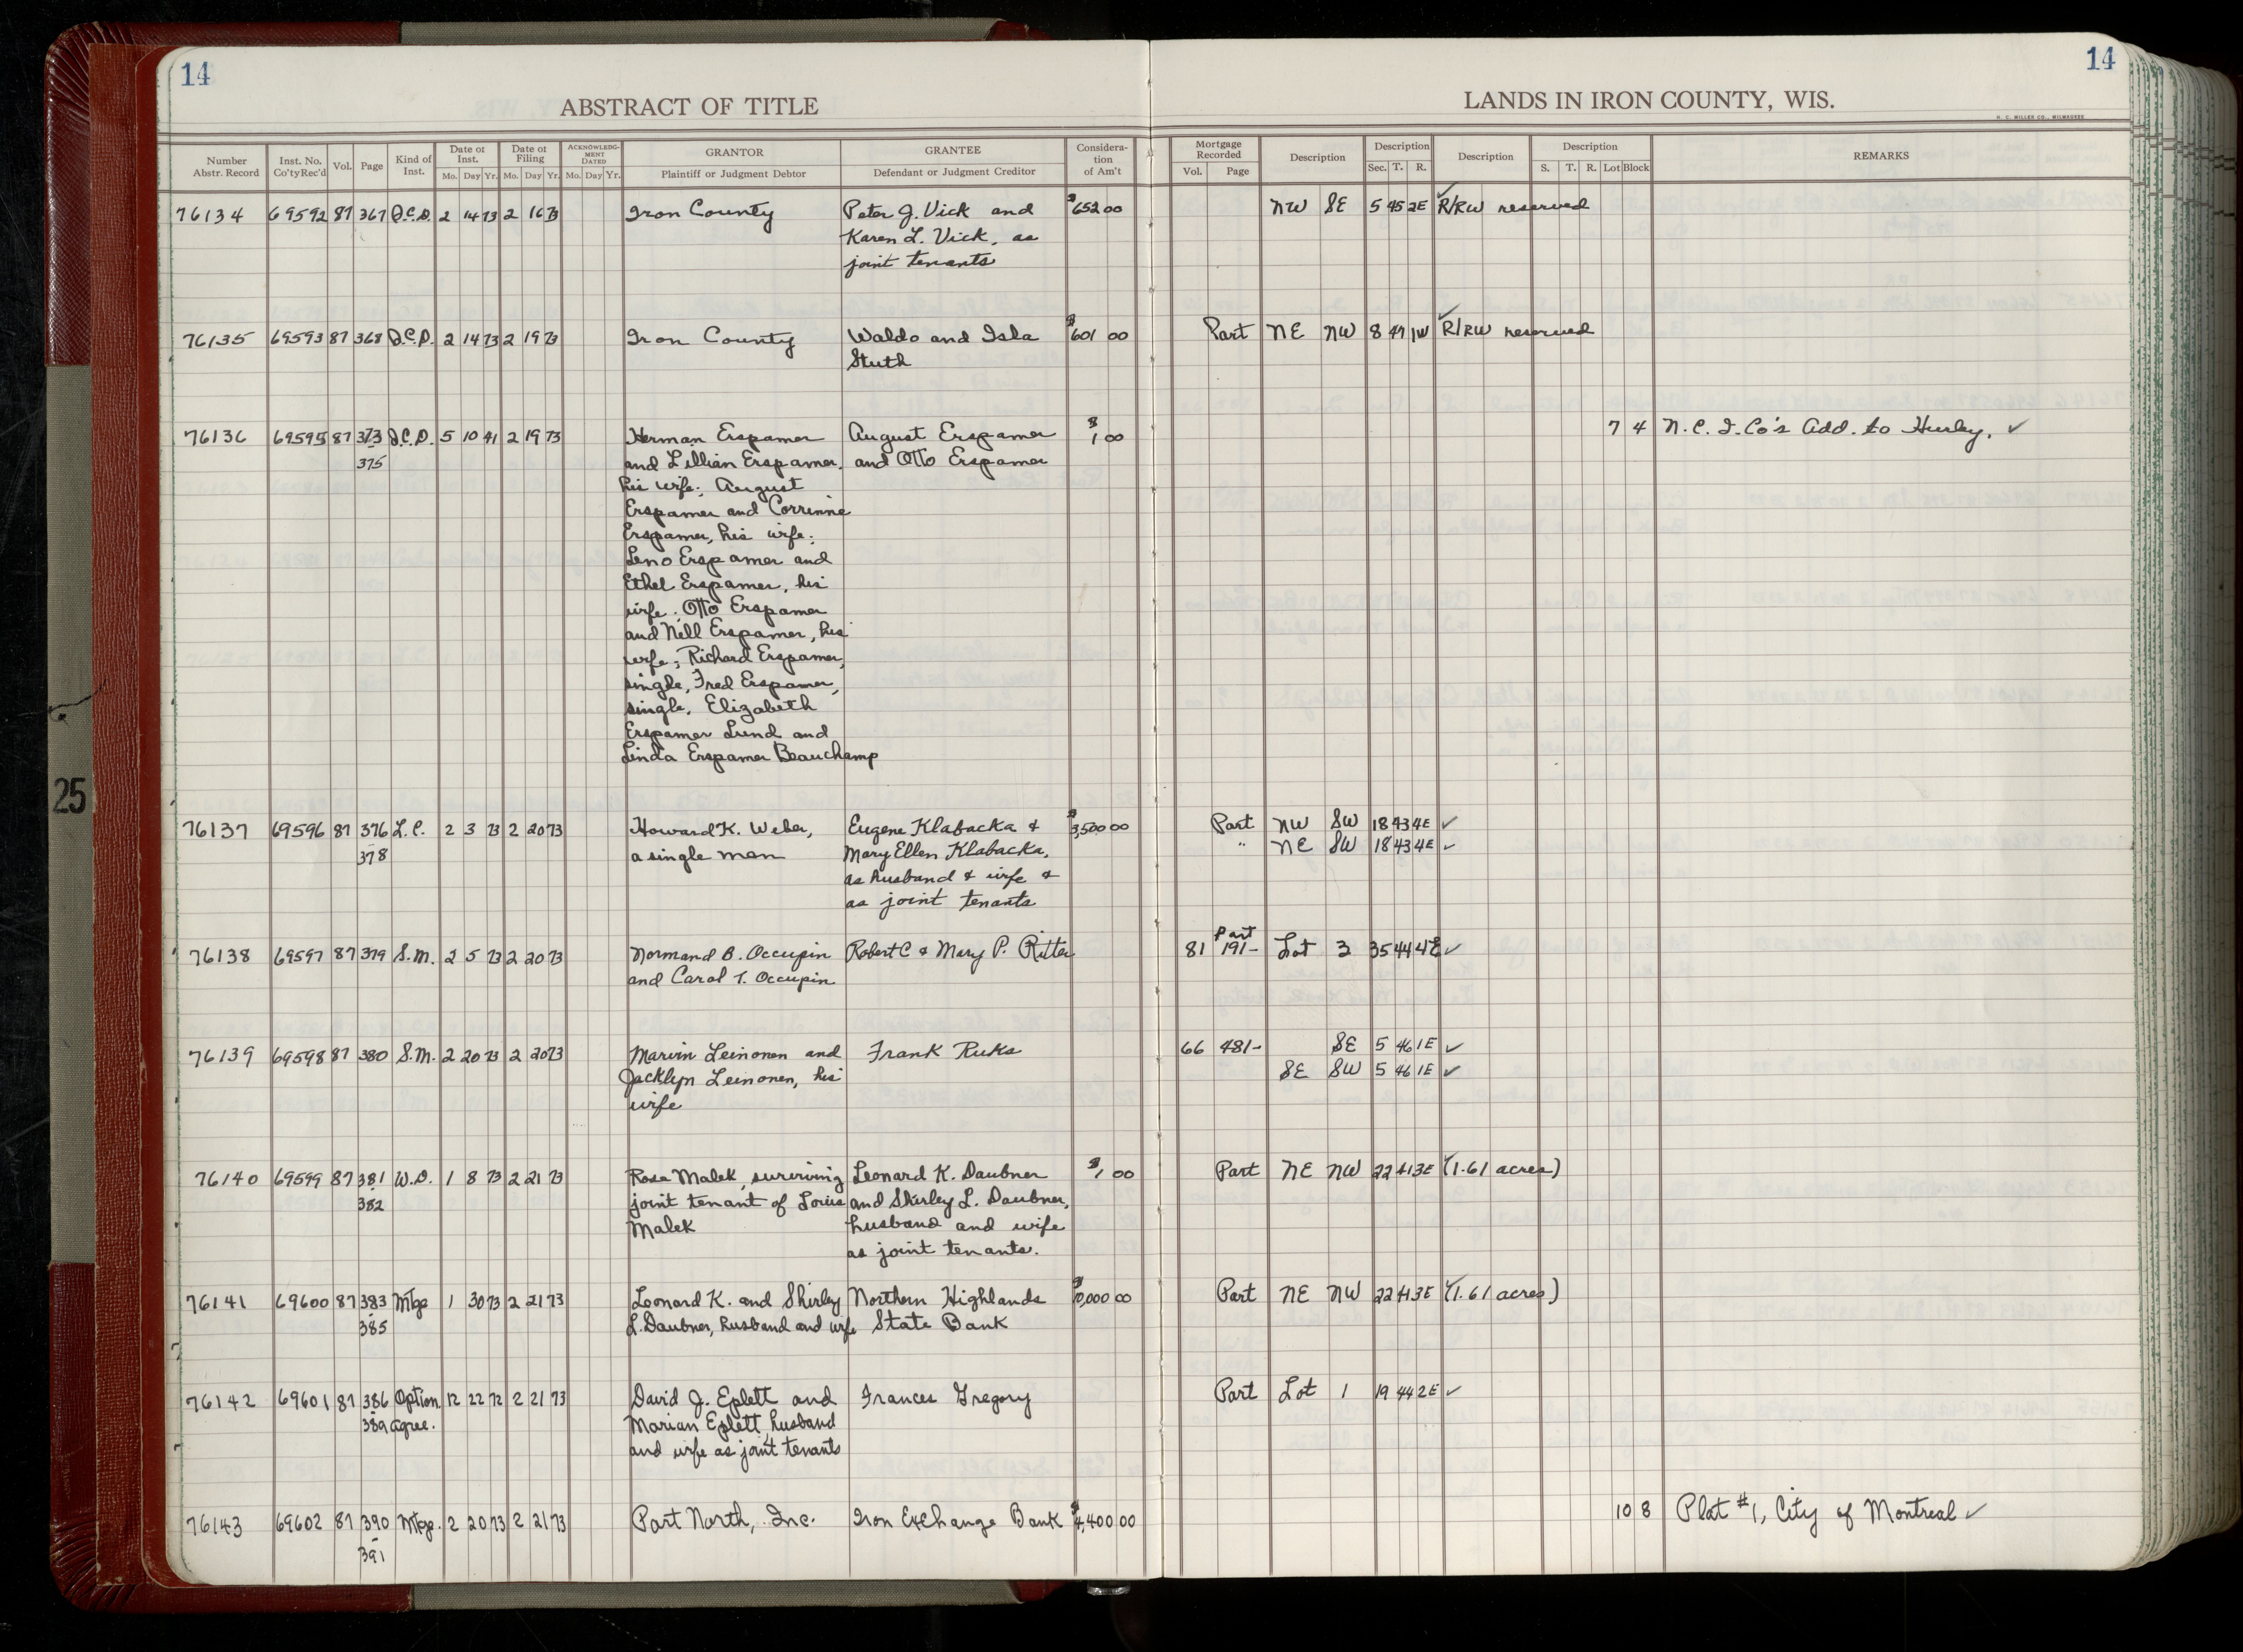 14
14
ABSTRACT OF TITLE
LANDS IN IRON COUNTY, WIS.
H. C. MILLER CO., MILWAUKEE
Number Abstr. Record Inst. No. Co'ty Rec'd Vol. Page Kind of Inst. Date of Inst. Mo. Day Yr. Date of Filing Mo. Day Yr. ACKNOWLEDGMENT DATED Mo. Day Yr. GRANTOR Plaintiff or Judgment Debtor GRANTEE Defendant or Judgment Creditor Consideration of Am't Mortgage Recorded Vol. Page Description Description Sec. T. R. Description Description S. T. R. Lot Block REMARKS
76134 69592 87 367 Q.C.D. 2 14 73 2 16 73 Iron County Peter J. Vick and $652 00 NW SE 5 45 2E R/RW reserved
Karen L. Vick, as
joint tenants
76135 69593 87 368 Q.C.D. 2 14 73 2 19 73 Iron County Waldo and Isla $601 00 Part NE NW 8 47 1W R/RW reserved
Stuth
76136 69595 87 373 Q.C.D. 5 10 41 2 19 73 Herman Erspamer August Erspamer $1 00 7 4 N.C.I. Co's Add. to Hurley. ✓
375 and Lillian Erspamer, and Otto Erspamer
his wife; August
Erspamer and Corrinne
Erspamer, his wife;
Leno Erspamer and
Ethel Erspamer, his
wife; Otto Erspamer
and Nell Erspamer, his
wife; Richard Erspamer,
single, Fred Erspamer,
single, Elizabeth
Erspamer Lund and
Linda Erspamer Beauchamp
76137 69596 87 376 L.C. 2 3 73 2 20 73 Howard K. Weber, Eugene Klabacka & $3,500 00 Part NW SW 18 43 4E ✓
378 a single man Mary Ellen Klabacka, " NE SW 18 43 4E ✓
as husband & wife &
as joint tenants
76138 69597 87 379 S.M. 2 5 73 2 20 73 Normand B. Occupin Robert C & Mary P. Ritter 81 191- Part Lot 3 35 44 4E ✓
and Carol T. Occupin
76139 69598 87 380 S.M. 2 20 73 2 20 73 Marvin Leinonen and Frank Ruks 66 481- SE 5 46 1E ✓
Jacklyn Leinonen, his SE SW 5 46 1E ✓
wife
76140 69599 87 381 W.D. 1 8 73 2 21 73 Rose Malek, surviving Leonard K. Daubner $1 00 Part NE NW 22 41 3E (1.61 acres)
382 joint tenant of Louis and Shirley L. Daubner,
Malek husband and wife
as joint tenants.
76141 69600 87 383 Mtge 1 30 73 2 21 73 Leonard K. and Shirley Northern Highlands $10,000 00 Part NE NW 22 41 3E (1.61 acres)
385 L. Daubner, husband and wife State Bank
76142 69601 87 386 Option 12 22 72 2 21 73 David J. Eplett and Frances Gregory Part Lot 1 19 44 2E ✓
389 agree. Marian Eplett, husband
and wife as joint tenants
76143 69602 87 390 Mtge. 2 20 73 2 21 73 Port North, Inc. Iron Exchange Bank $4,400 00 10 8 Plat #1, City of Montreal ✓
391
25